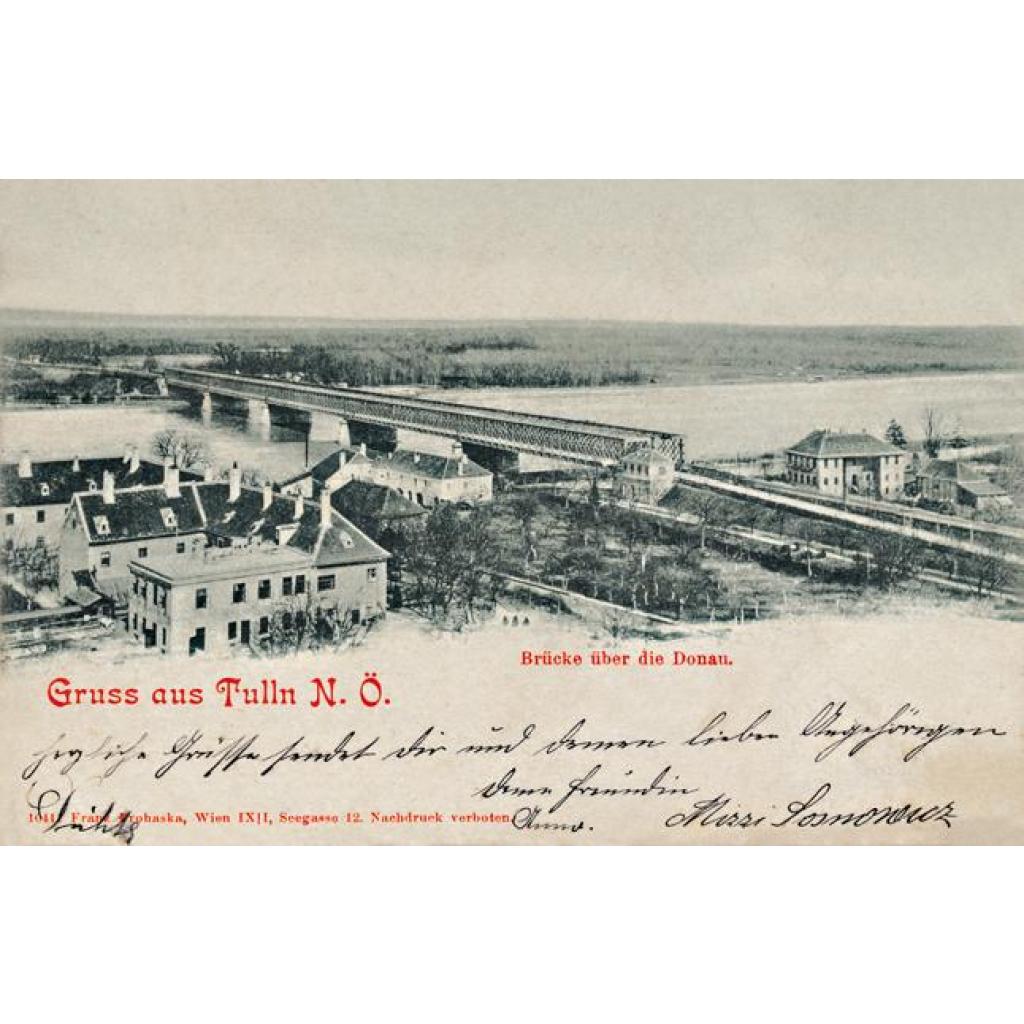 Brücke über die Donau.
Gruss aus Tulln N. Ö.
herzliche Grüsse sendet dir und deinen lieben Angehörigen
deine Freundin
Anna. Mizzi Sosnowicz
Franz Prohaska, Wien IX|1, Seegasse 12. Nachdruck verboten.